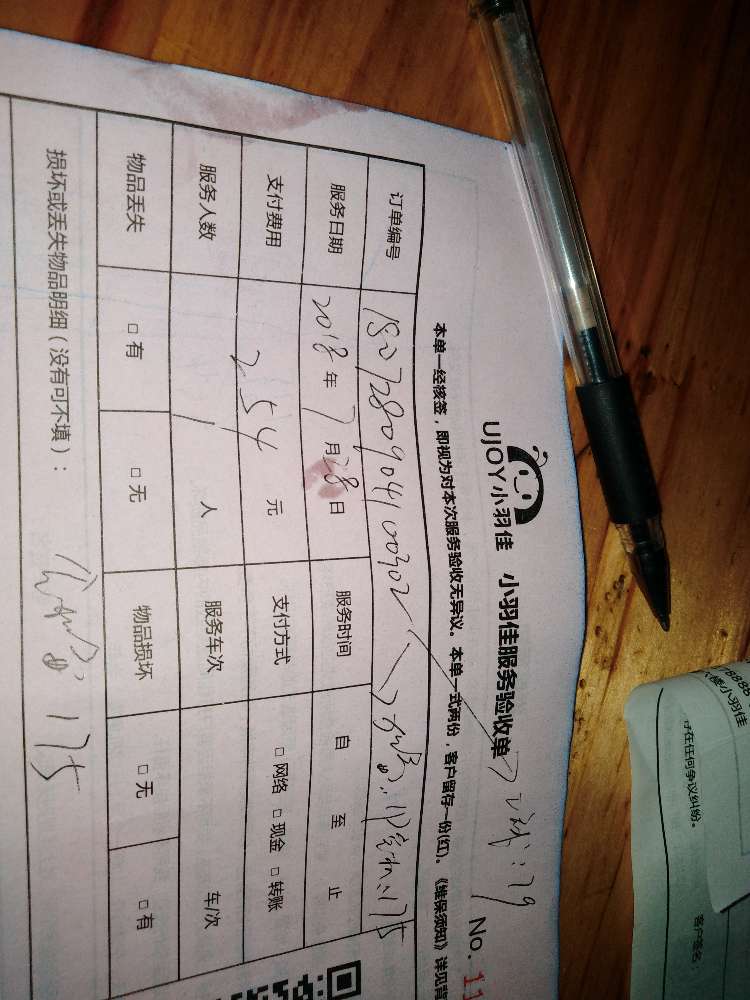 UJOY小羽佳 小羽佳服务验收单
No. 11
本单一经核签，即视为对本次服务验收无异议。本单一式两份，客户留存一份(红)。《维保须知》详见背
订单编号
服务日期 2018年7月28日 服务时间 自 至 止
支付费用 254元 支付方式 □网络 □现金 □转账
服务人数 1人 服务车次 车/次
物品丢失 □有 □无 物品损坏 □无 □有
损坏或丢失物品明细（没有可不填）：
175
78888
小羽佳
存在任何争议纠纷。
客户签名：